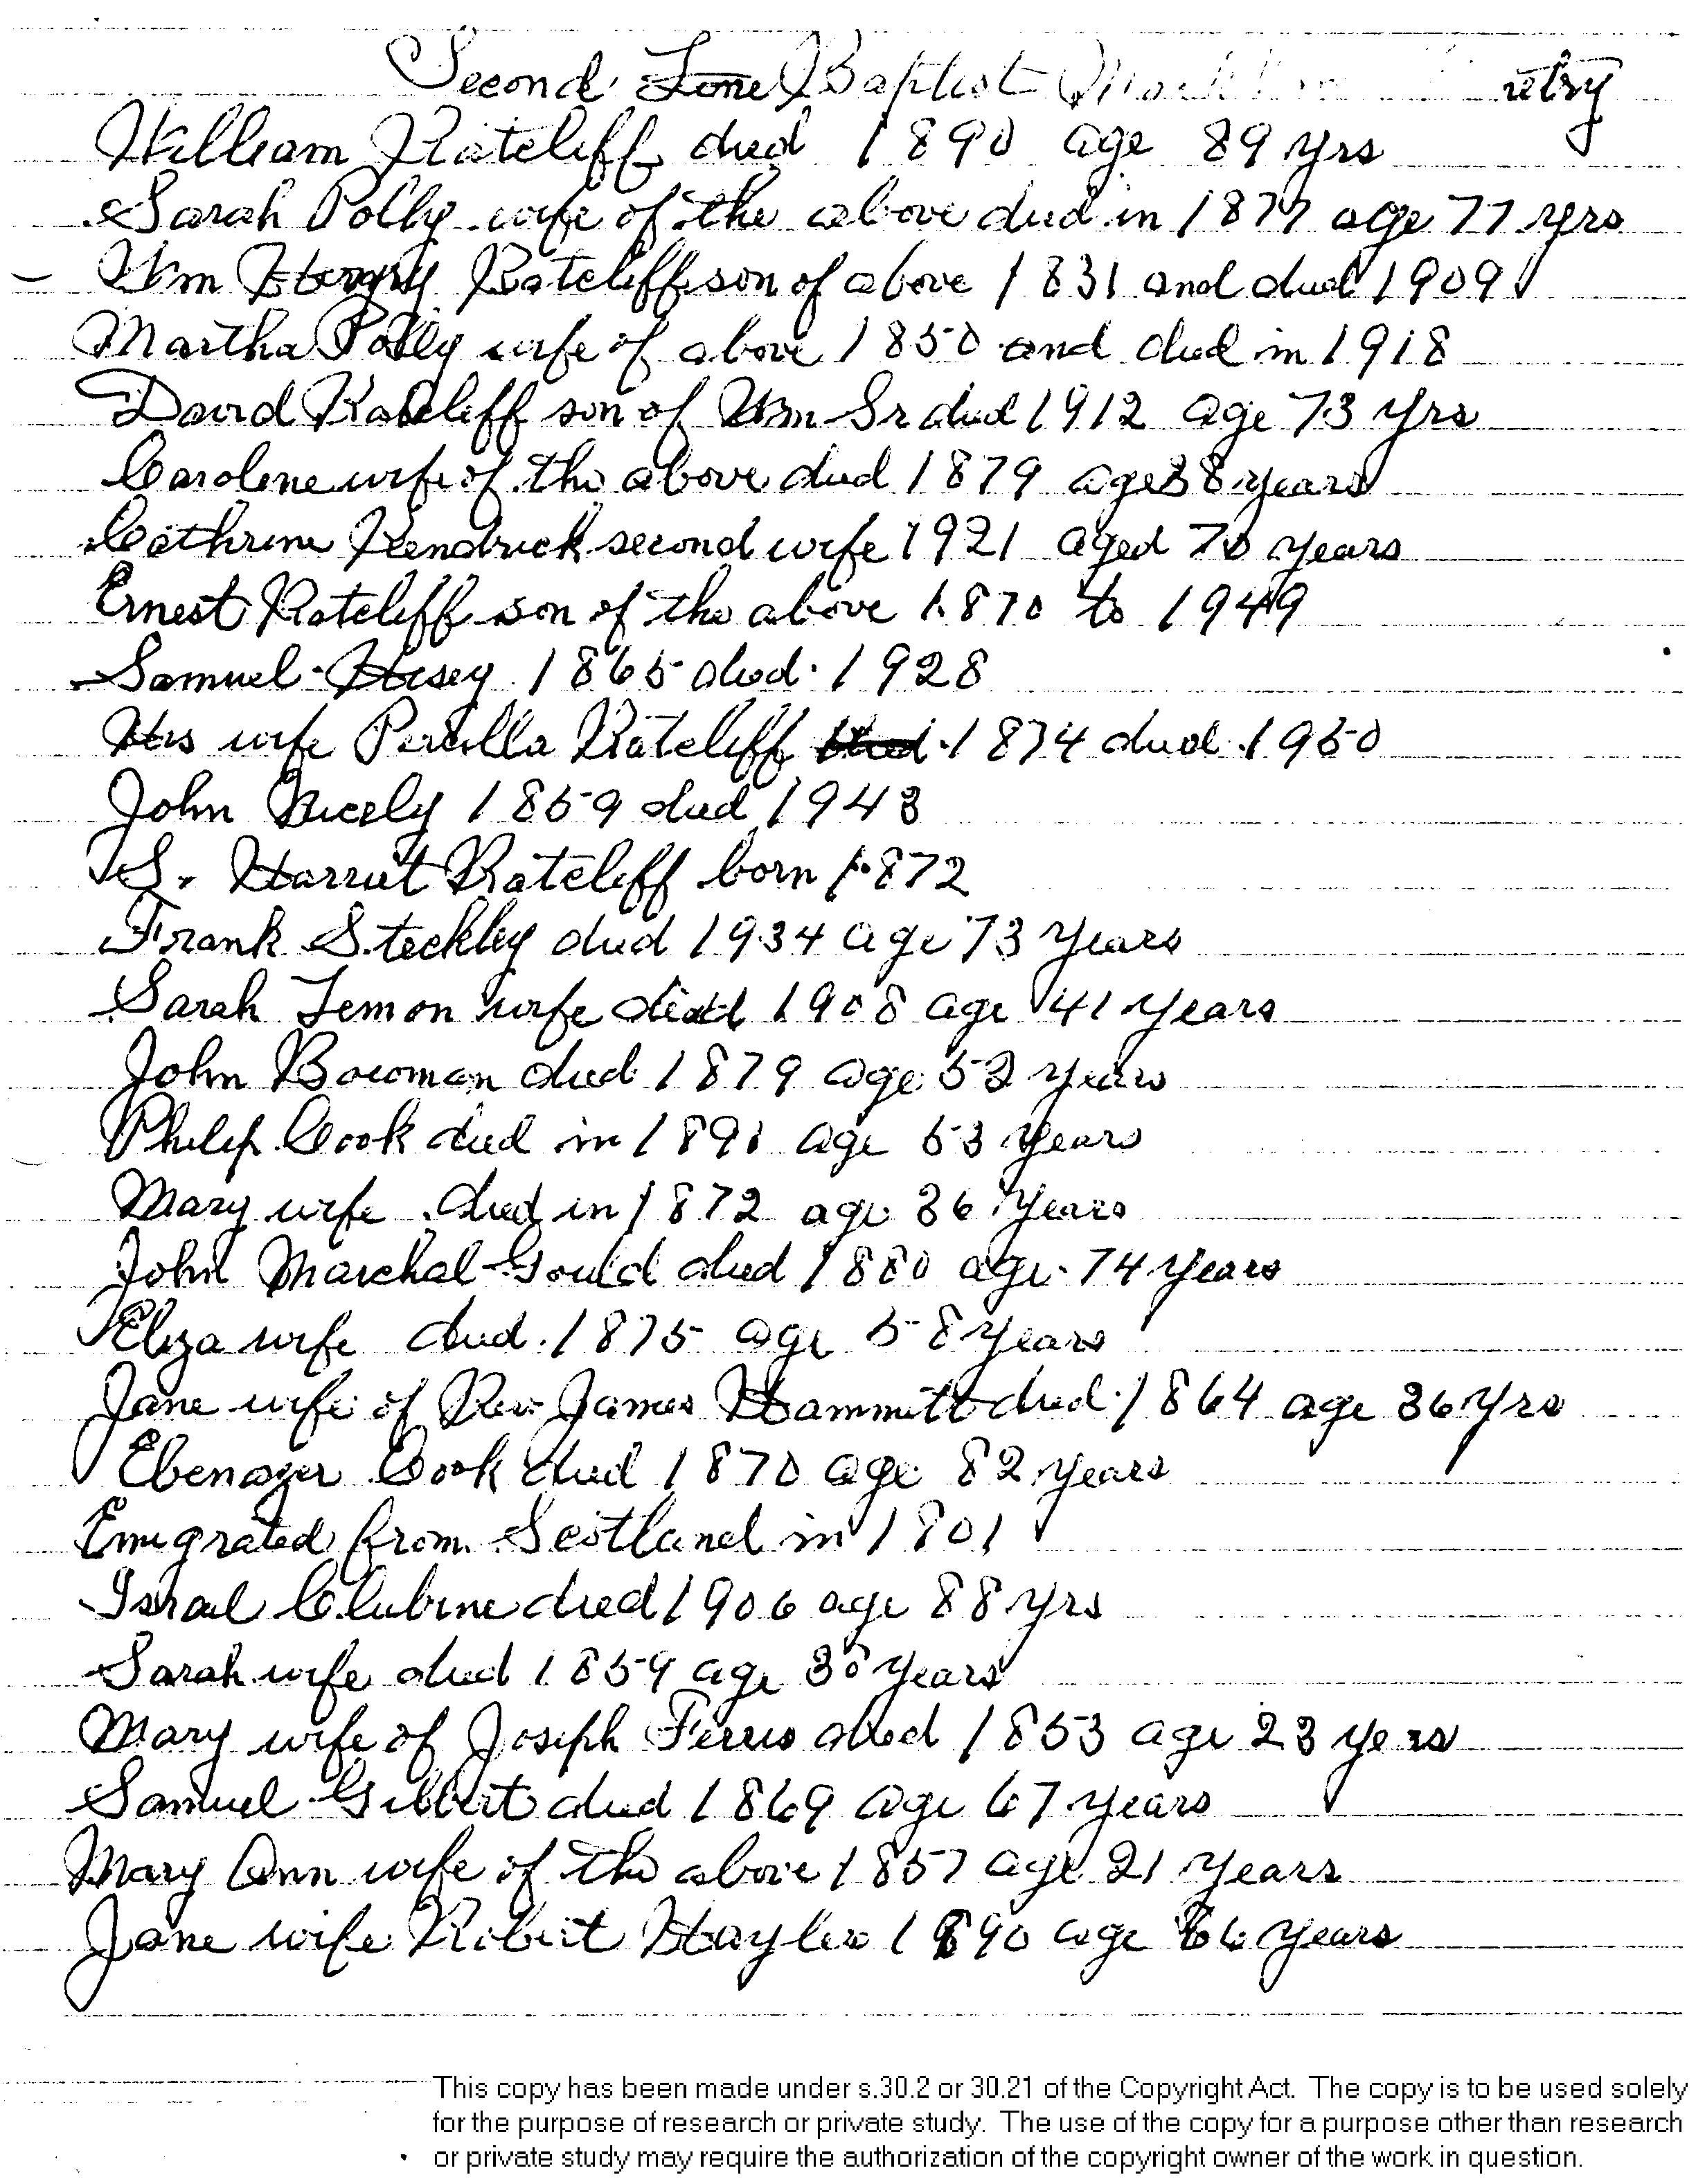 Second Line Baptist
William Ratcliff died 1890 age 89 yrs
Sarah Polly wife of the above died in 1877 age 77 yrs
Wm Henry Ratcliff son of above 1831 and died 1909
Martha Polly wife of above 1850 and died in 1918
David Ratcliff son of Wm Sr died 1912 age 73 yrs
Carolene wife of the above died 1879 age 38 years
Cathrine Kendrick second wife 1921 aged years
Ernest Ratcliff son of the above 1870 to 1949
Samuel Hisey 1865 died 1928
His wife Percilla Ratcliff 1874 died 1950
John Nicely 1859 died 1943
S. Harriet Ratcliff born 1872
Frank Steckley died 1934 age 73 years
Sarah Lemon wife died 1908 age 41 years
John Bowman died 1879 age 52 years
Philip Cook died in 1891 age 53 years
Mary wife died in 1872 age 36 years
John Marchal Gould died 1880 age 74 years
Eliza wife died 1875 age 58 years
Jane wife of Rev James Hammitt died 1864 age 36 yrs
Ebenazer Cook died 1870 age 82 years
Emigrated from Scotland in 1801
Israel Clubine died 1906 age 88 yrs
Sarah wife died 1859 age 30 years
Mary wife of Joseph Ferris died 1853 age 23 years
Samuel Gilbert died 1869 age 67 years
Mary Ann wife of the above 1857 age 21 years
Jane wife Robert Hayles 1890 age years
This copy has been made under s.30.2 or 30.21 of the Copyright Act. The copy is to be used solely
for the purpose of research or private study. The use of the copy for a purpose other than research
or private study may require the authorization of the copyright owner of the work in question.